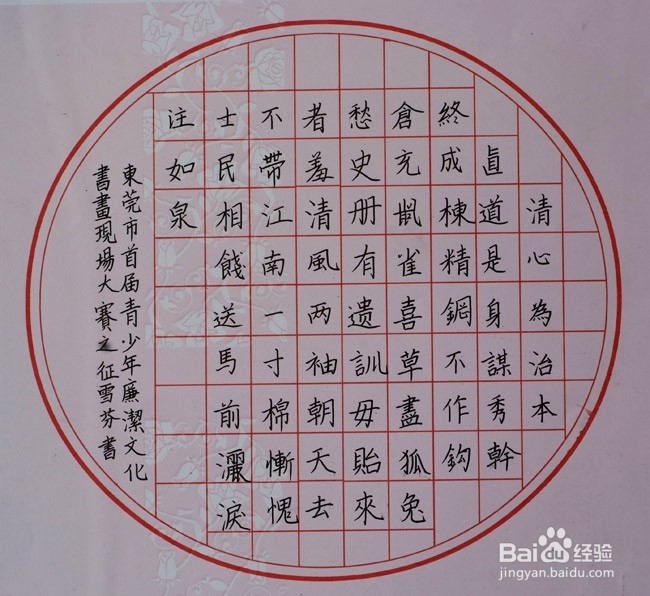 清心為治本
直道是身謀秀幹
終成棟精鋼不作鈎
倉充鼠雀喜草盡狐兔
愁史册有遺訓毋貽來
者羞清風两袖朝天去
不帶江南一寸棉慚愧
士民相餞送馬前灑淚
注如泉
東莞市首届青少年廉潔文化
書畫現場大賽之征雪芬書
Bai du 经验
jingyan.baidu.com